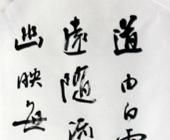 道由白雲
遠隨流
幽映每